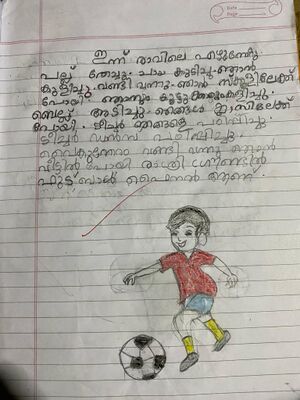 Date
Page
ഇന്ന് രാവിലെ എഴുന്നേറ്റു
പല്ല് തേച്ചു. ചായ കുടിച്ചു. ഞാൻ
കുളിച്ചു. വണ്ടി വന്നു. ഞാൻ സ്കൂളിലേക്ക്
പോയി. ഞാനും കൂട്ടുക്കാരും
ബെല്ല് അടിച്ചു. ഞങ്ങൾ ക്ലാസിലേക്ക്
പോയി. ടീച്ചർ ഞങ്ങളെ പഠിപ്പിച്ചു.
ടീച്ചർ ഡാൻസ് പഠിപ്പിച്ചു.
വൈകുന്നേരം വണ്ടി വന്നു ഞാൻ
വീട്ടിൽ പോയി രാത്രി
ഫുട്ബോൾ ഫൈനൽ ആണ്